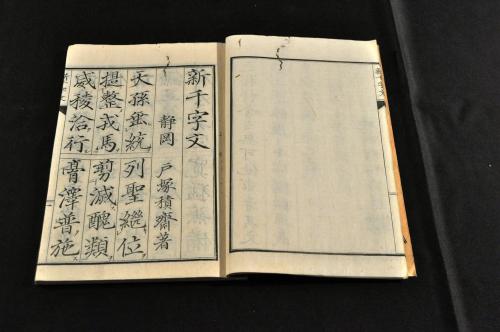 新千字文
静岡 戸塚積齋著
天孫垂統 列聖繼位
提整戎馬 剪滅醜類
威稜洽行 膏澤普施